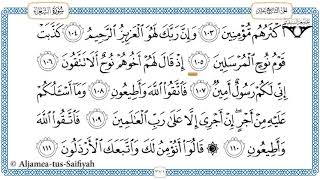 سُورَةُ الشُّعَرَاءِ
أَكْثَرُهُمْ مُّؤْمِنِينَ ١٠٣ وَإِنَّ رَبَّكَ لَهُوَ الْعَزِيزُ الرَّحِيمُ ١٠٤ كَذَّبَتْ
قَوْمُ نُوحٍ الْمُرْسَلِينَ ١٠٥ إِذْ قَالَ لَهُمْ أَخُوهُمْ نُوحٌ أَلَا تَتَّقُونَ ١٠٦
إِنِّي لَكُمْ رَسُولٌ أَمِينٌ ١٠٧ فَاتَّقُوا اللَّهَ وَأَطِيعُونِ ١٠٨ وَمَا أَسْأَلُكُمْ
عَلَيْهِ مِنْ أَجْرٍ إِنْ أَجْرِيَ إِلَّا عَلَىٰ رَبِّ الْعَالَمِينَ ١٠٩ فَاتَّقُوا اللَّهَ
وَأَطِيعُونِ ١١٠ قَالُوا أَنُؤْمِنُ لَكَ وَاتَّبَعَكَ الْأَرْذَلُونَ ١١١
© Aljamea-tus-Saifiyah